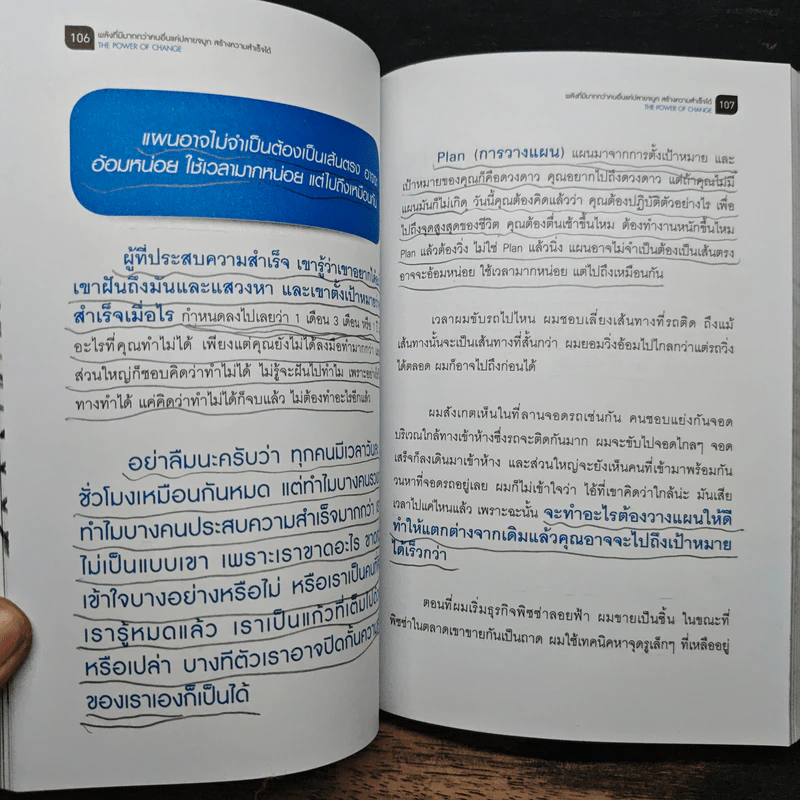 106 พลังที่มีมากกว่าคนอื่นแค่ปลายจมูก สร้างความสำเร็จได้
THE POWER OF CHANGE
แผนอาจไม่จำเป็นต้องเป็นเส้นตรง อาจจะ
อ้อมหน่อย ใช้เวลามากหน่อย แต่ไปถึงเหมือนกัน
ผู้ที่ประสบความสำเร็จ เขารู้ว่าเขาอยากได้
เขาฝันถึงมันและแสวงหา และเขาตั้งเป้าหมาย
สำเร็จเมื่อไร กำหนดลงไปเลยว่า 1 เดือน 3 เดือน หรือ 1
อะไรที่คุณทำไม่ได้ เพียงแต่คุณยังไม่ได้ลงมือทำมากกว่า
ส่วนใหญ่ก็ชอบคิดว่าทำไม่ได้ ไม่รู้จะฝันไปทำไม เพราะอย่างไร
ทางทำได้ แค่คิดว่าทำไม่ได้ก็จบแล้ว ไม่ต้องทำอะไรอีกแล้ว
อย่าลืมนะครับว่า ทุกคนมีเวลาวันละ
ชั่วโมงเหมือนกันหมด แต่ทำไมบางคนรวย
ทำไมบางคนประสบความสำเร็จมากกว่า
ไม่เป็นแบบเขา เพราะเราขาดอะไร ขาด
เข้าใจบางอย่างหรือไม่ หรือเราเป็นคนที่
เรารู้หมดแล้ว เราเป็นแก้วที่เต็มไปด้วย
หรือเปล่า บางทีตัวเราอาจปิดกั้นความ
ของเราเองก็เป็นได้
พลังที่มีมากกว่าคนอื่นแค่ปลายจมูก สร้างความสำเร็จได้ 107
THE POWER OF CHANGE
Plan (การวางแผน) แผนมาจากการตั้งเป้าหมาย และ
เป้าหมายของคุณก็คือดวงดาว คุณอยากไปถึงดวงดาว แต่ถ้าคุณไม่มี
แผนมันก็ไม่เกิด วันนี้คุณต้องคิดแล้วว่า คุณต้องปฏิบัติตัวอย่างไร เพื่อ
ไปถึงจุดสูงสุดของชีวิต คุณต้องตื่นเช้าขึ้นไหม ต้องทำงานหนักขึ้นไหม
Plan แล้วต้องวิ่ง ไม่ใช่ Plan แล้วนิ่ง แผนอาจไม่จำเป็นต้องเป็นเส้นตรง
อาจจะอ้อมหน่อย ใช้เวลามากหน่อย แต่ไปถึงเหมือนกัน
เวลาผมขับรถไปไหน ผมชอบเลี่ยงเส้นทางที่รถติด ถึงแม้
เส้นทางนั้นจะเป็นเส้นทางที่สั้นกว่า ผมยอมวิ่งอ้อมไปไกลกว่าแต่รถวิ่ง
ได้ตลอด ผมก็อาจไปถึงก่อนได้
ผมสังเกตเห็นในที่ลานจอดรถเช่นกัน คนชอบแย่งกันจอด
บริเวณใกล้ทางเข้าห้างซึ่งรถจะติดกันมาก ผมจะขับไปจอดไกลๆ จอด
เสร็จก็ลงเดินมาเข้าห้าง และส่วนใหญ่จะยังเห็นคนที่เข้ามาพร้อมกัน
วนหาที่จอดรถอยู่เลย ผมก็ไม่เข้าใจว่า ไอ้ที่เขาคิดว่าใกล้น่ะ มันเสีย
เวลาไปแค่ไหนแล้ว เพราะฉะนั้น จะทำอะไรต้องวางแผนให้ดี
ทำให้แตกต่างจากเดิมแล้วคุณอาจจะไปถึงเป้าหมาย
ได้เร็วกว่า
ตอนที่ผมเริ่มธุรกิจพิซซ่าลอยฟ้า ผมขายเป็นชิ้น ในขณะที่
พิซซ่าในตลาดเขาขายกันเป็นถาด ผมใช้เทคนิคหาจุดรูเล็กๆ ที่เหลืออยู่